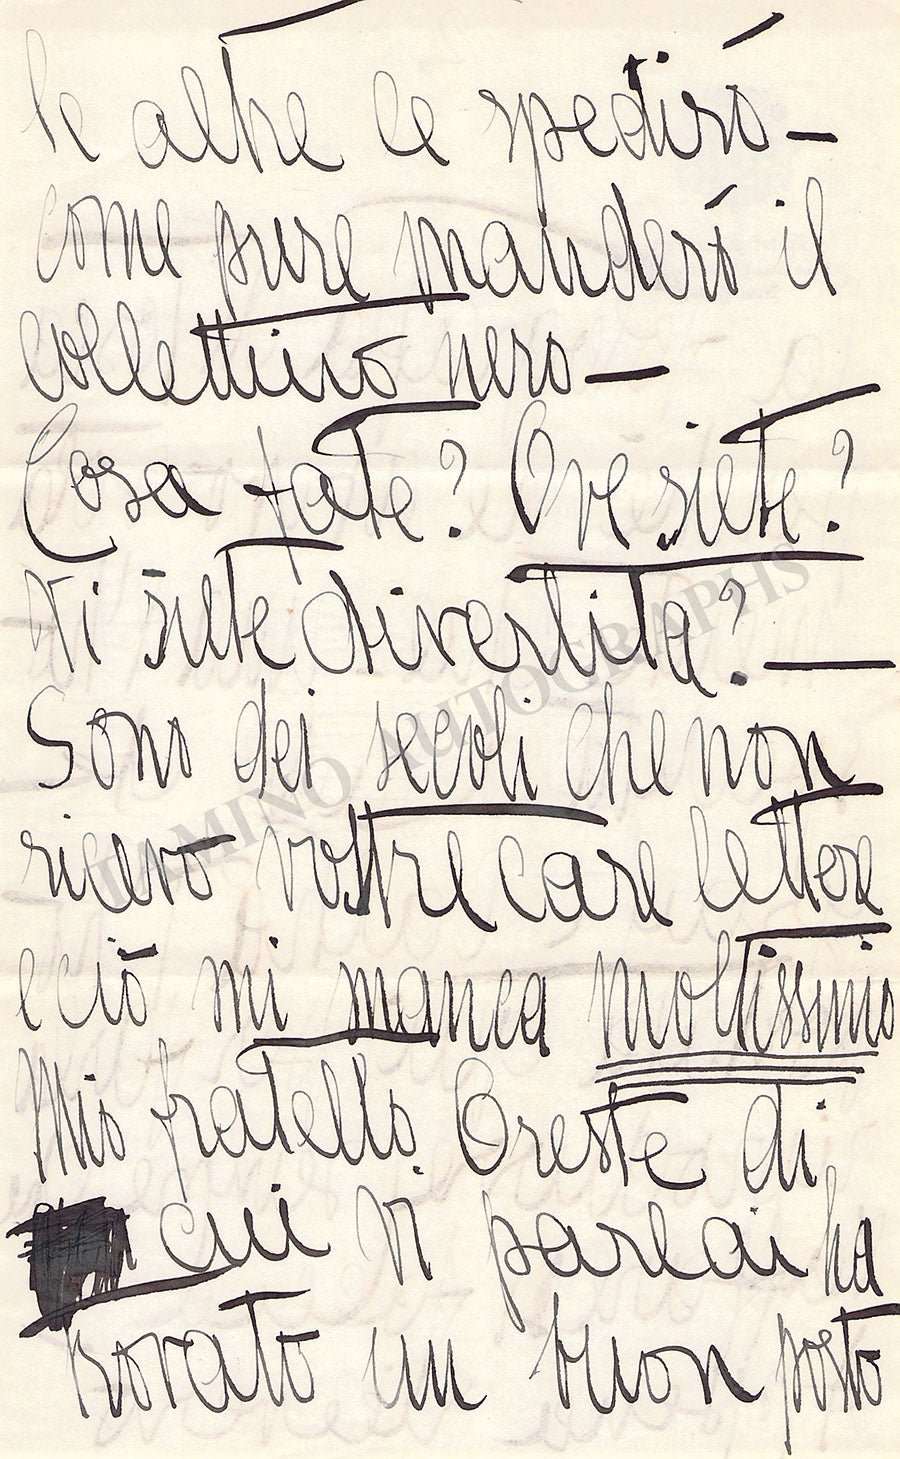 le altre le spedirò —
come pure manderò il
collettino nero —
Cosa fate? Ove siete?
Vi siete divertita? —
Sono dei secoli che non
ricevo vostre care lettere
e ciò mi manca moltissimo
Mio fratello Oreste di
cui Vi parlai ha
trovato un buon posto
TAMINO AUTOGRAPHS